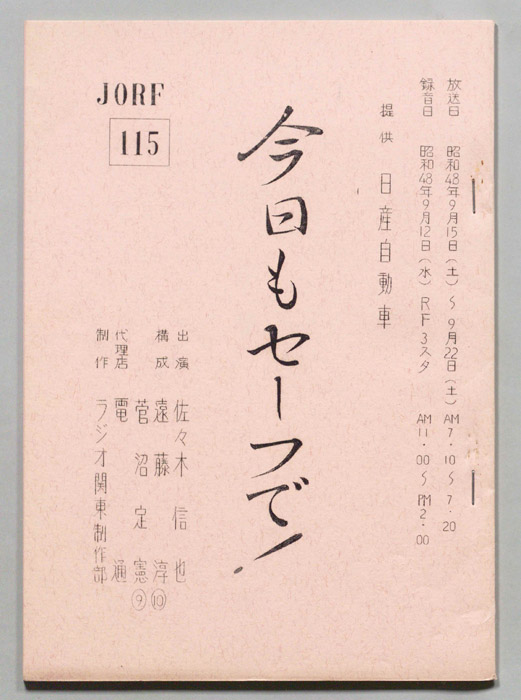 放送日 昭和48年9月15日(土)～9月22日(土) AM7.10～7.20
録音日 昭和48年9月12日(水) RF3スタ AM11.00～PM2.00
提供 日産自動車
今日もセーフで!
JORF
115
出演 佐々木信也
構成 遠藤淳⑩
菅沼定憲⑨
代理店 電通
制作 ラジオ関東制作部